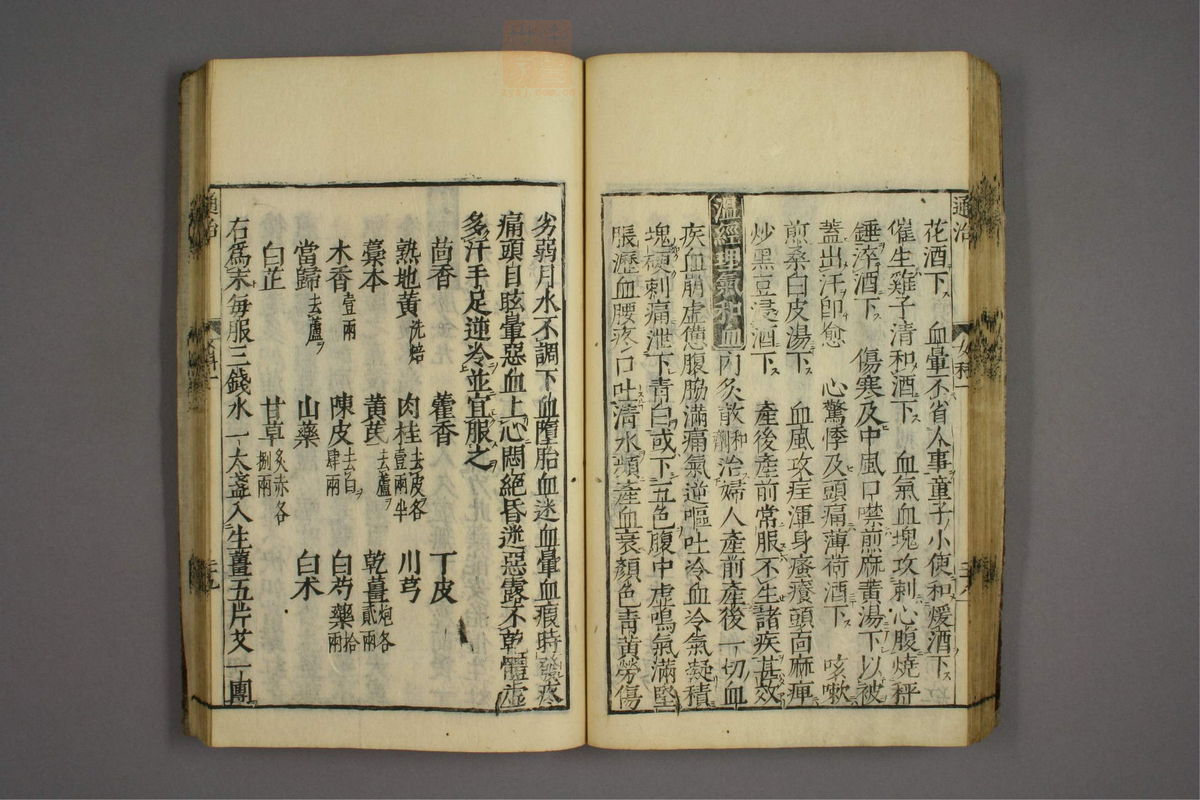 通治
女科一
花酒下 血暈不省人事童子小使和煖酒下
催生雞子清和酒下 血氣血塊攻刺心腹燒秤
錘淬酒下 傷寒及中風口噤煎麻黃湯下以被
蓋出汗卽愈 心驚悸及頭痛薄荷酒下 咳嗽
煎桑白皮湯下 血風攻疰渾身瘙癢頭靣麻痺
炒黑豆浸酒下 產後產前常服不生諸疾甚效
溫經理氣和血 內炙散 和劑 治婦人產前產後一切血
疾血崩虛憊腹脇滿痛氣逆嘔吐冷血冷氣凝積
塊梗刺痛泄下青白或下五色腹中虛鳴氣滿堅
脹瀝血腰疼口吐清水頻產血衰顏色青黃勞傷
劣弱月水不調下血墮胎血迷血暈血瘕時發疼
痛頭目眩暈惡血上心悶絕昏迷惡露不乾體虛
多汗手足逆冷並宜服之
茴香 藿香 丁皮
熟地黃洗焙 肉桂去皮各壹兩半 川芎
藁本 黃芪去蘆 乾薑炮各貳兩
木香壹兩 陳皮去白肆兩 白芍藥拾兩
當歸去蘆 山藥
白芷 甘草炙赤各捌兩 白朮
右爲末每服三錢水一大盞入生薑五片艾一團
通治
女科一